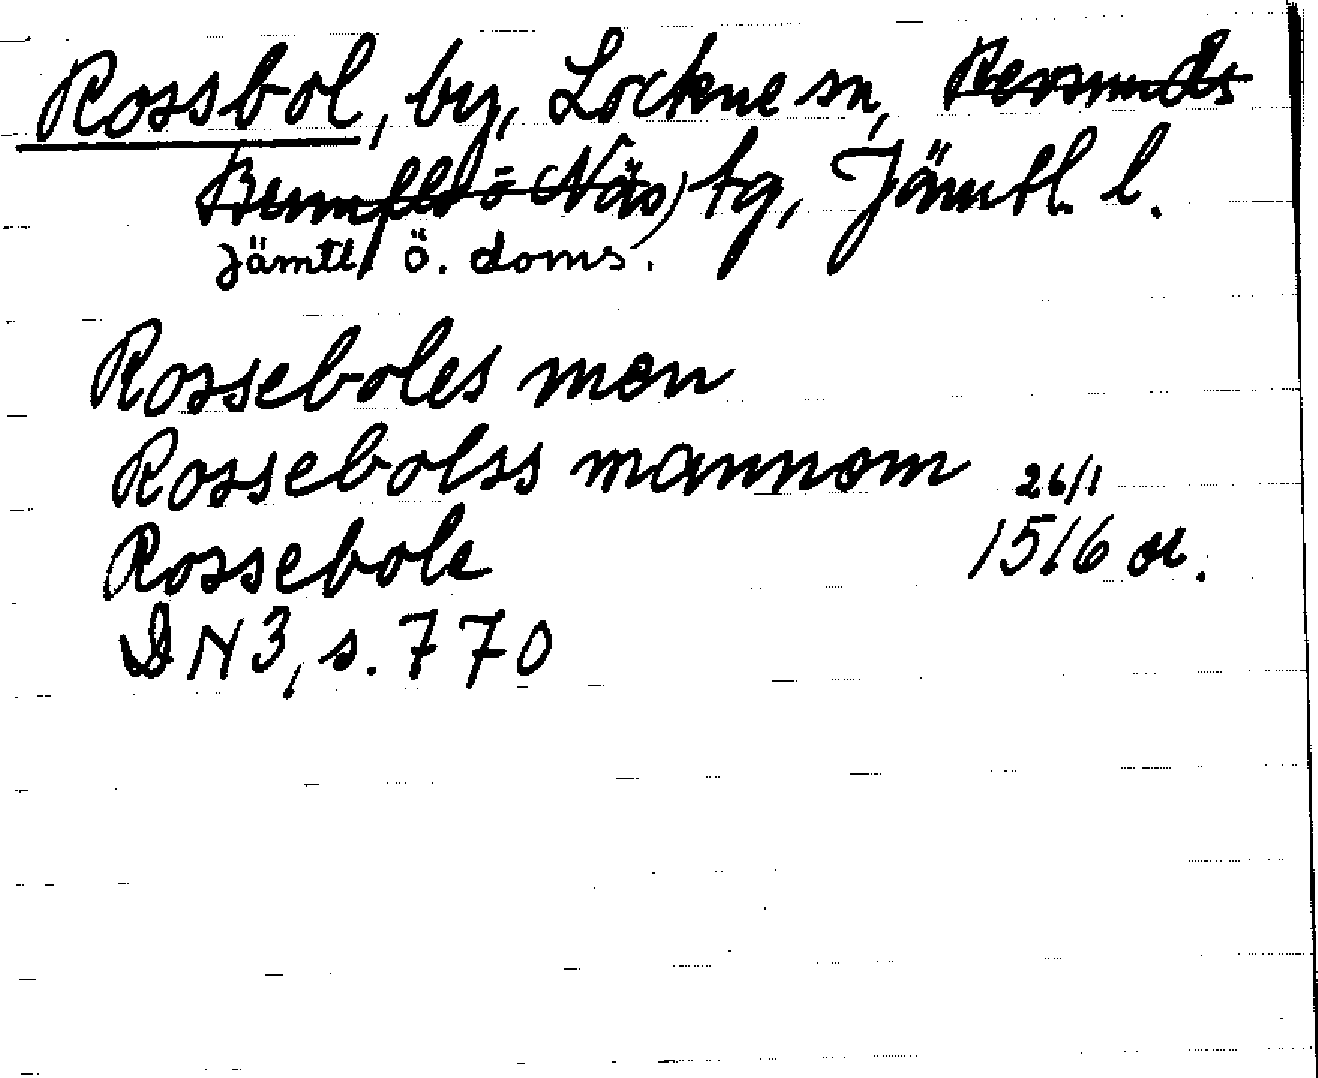 Rossbol, by, Lockne sn, Revsunds
Brunflo (Näs) tg, Jämtl. l.
Jämtl ö. doms.
Rosseboles men
Rossebolss mannom 26/1
Rossebole 1516 or.
DN 3, s. 770